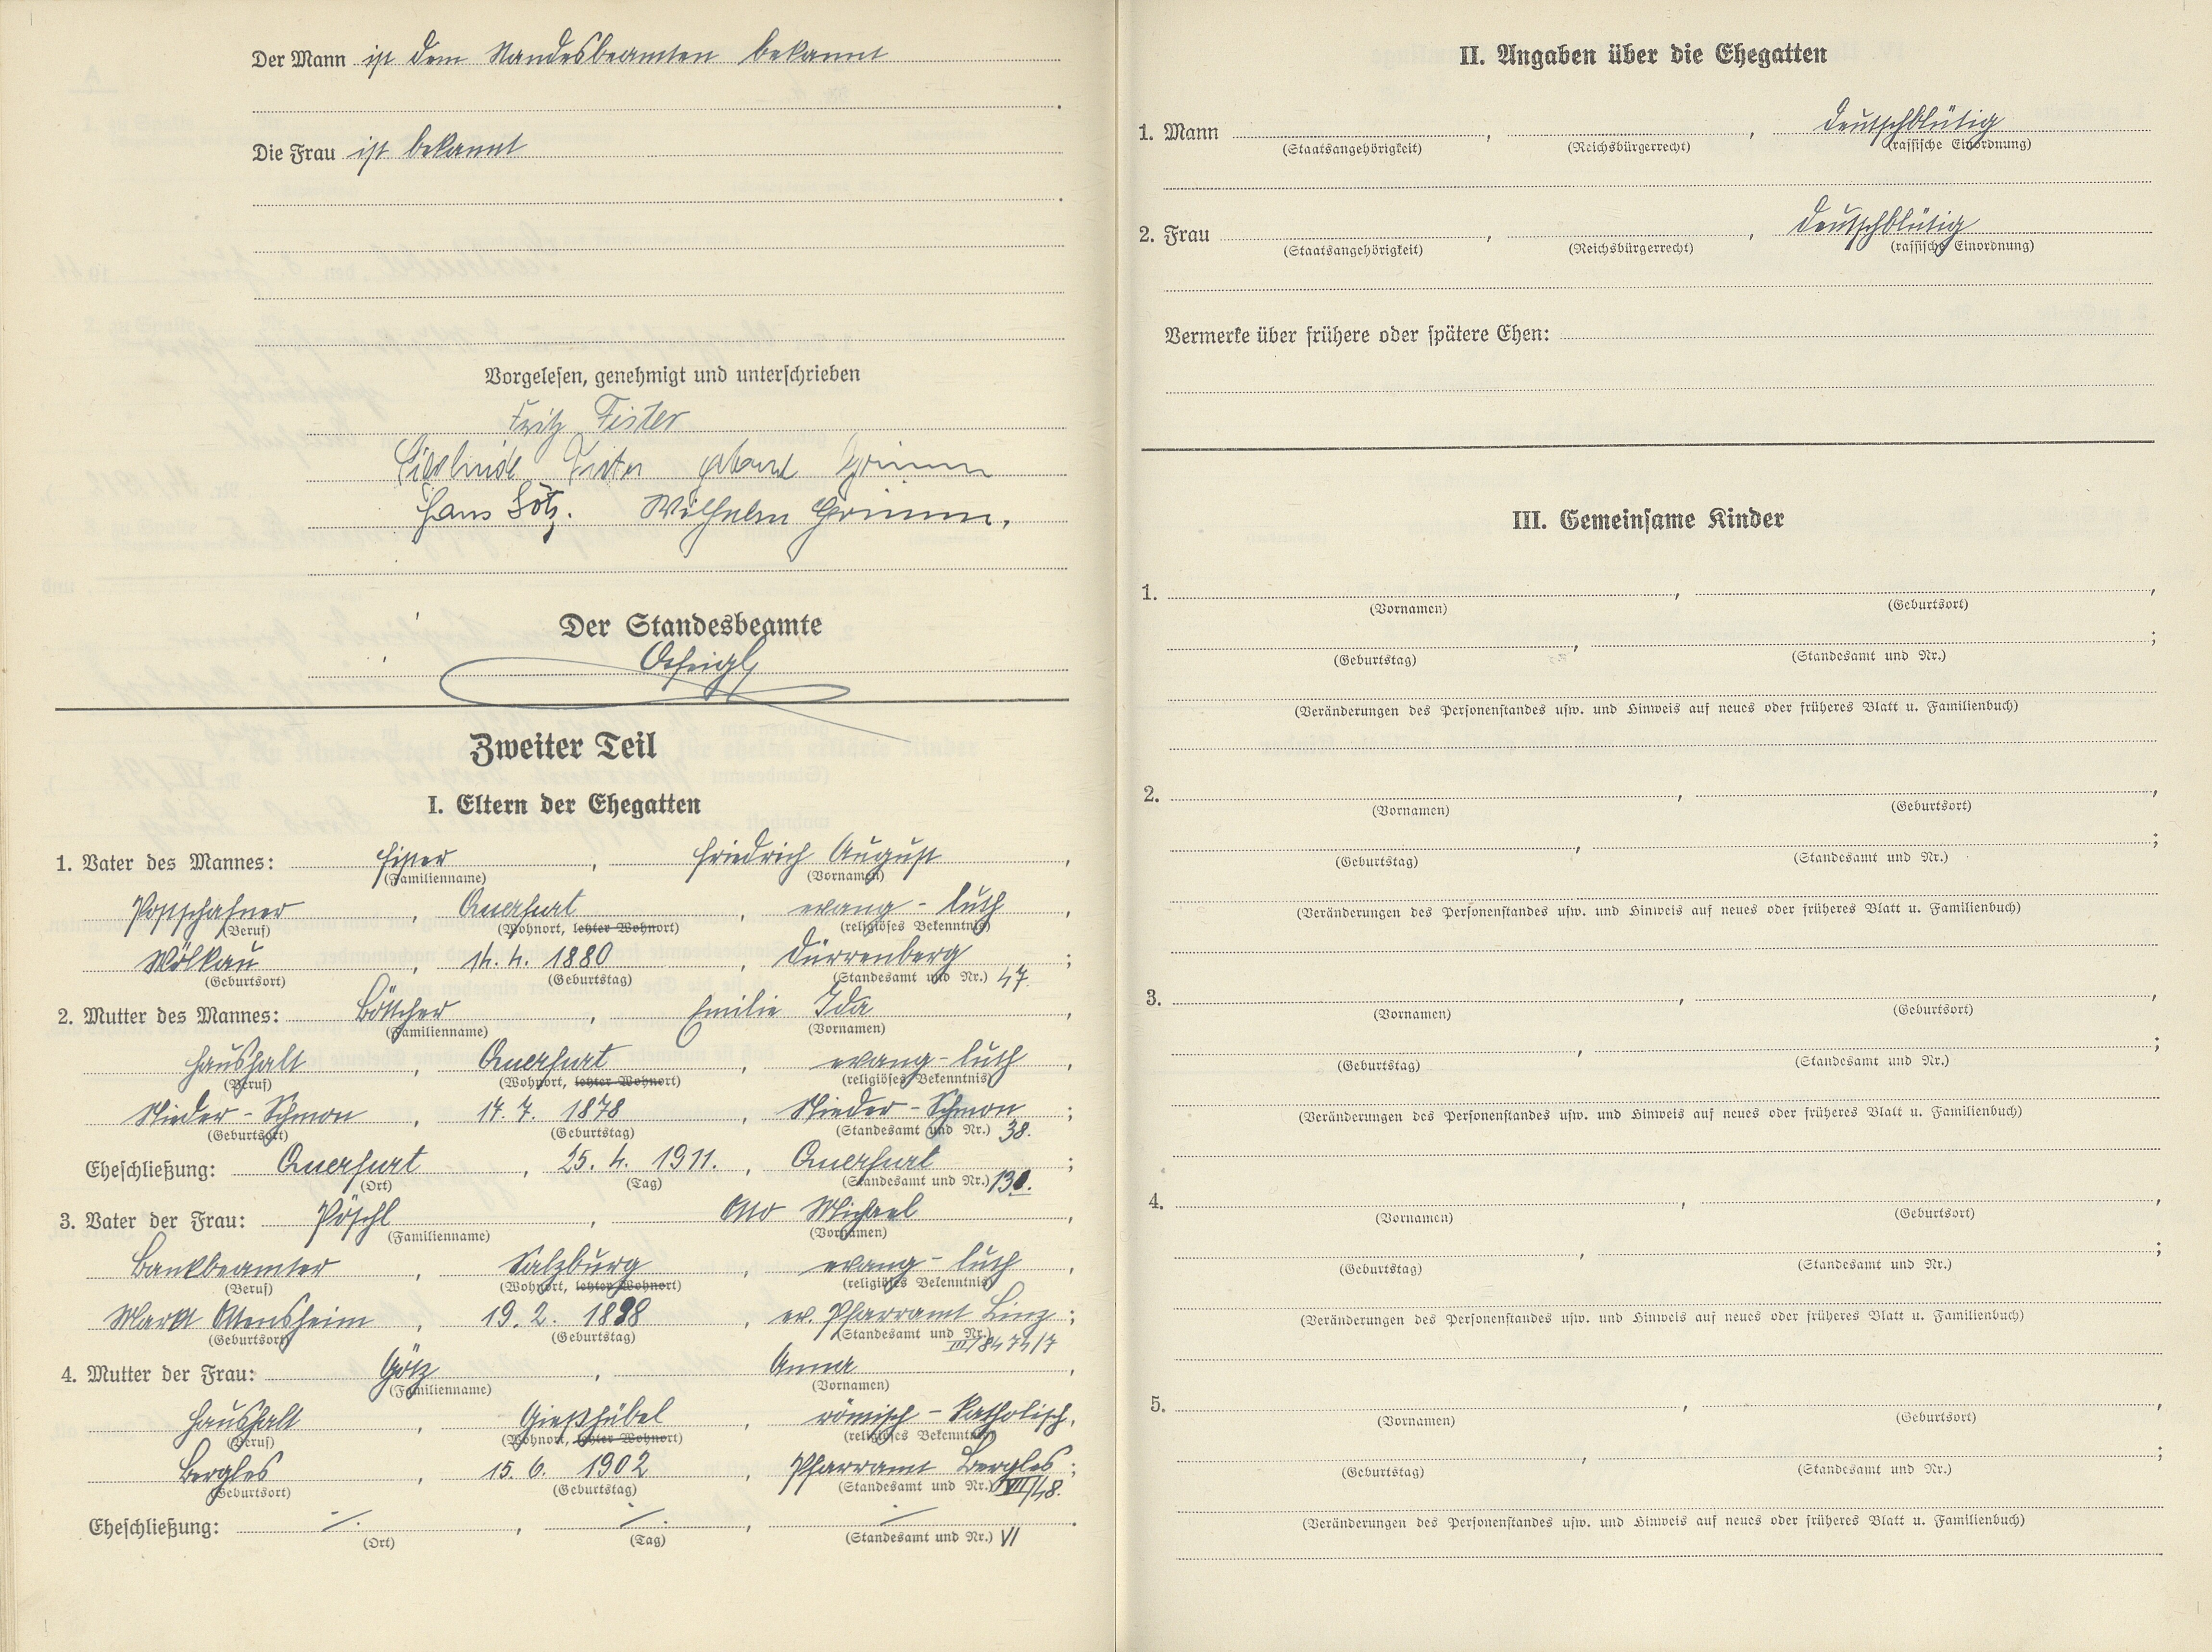 Der Mann ist dem Standesbeamten bekannt
.
Die Frau ist bekannt
.
Vorgelesen, genehmigt und unterschrieben
Fritz Fister
Fister geborne Grimm
Hans Götz. Wilhelm Grimm.
Der Standesbeamte
Zweiter Teil
I. Eltern der Ehegatten
1. Vater des Mannes: Fister, Friedrich August,
(Familienname) (Vornamen)
Postschafner, Querfurt, evang-luth,
(Beruf) (Wohnort, letzter Wohnort) (religiöses Bekenntnis)
Wölkau, 14. 4. 1880, Dürrenberg;
(Geburtsort) (Geburtstag) (Standesamt und Nr.) 47.
2. Mutter des Mannes: Böttcher, Emilie Ida,
(Familienname) (Vornamen)
Haushalt, Querfurt, evang-luth,
(Beruf) (Wohnort, letzter Wohnort) (religiöses Bekenntnis)
Nieder-Schmon, 17. 7. 1878, Nieder-Schmon;
(Geburtsort) (Geburtstag) (Standesamt und Nr.) 38.
Eheschließung: Querfurt, 25. 4. 1911., Querfurt;
(Ort) (Tag) (Standesamt und Nr.) 130.
3. Vater der Frau: Pöschl, Otto Michael,
(Familienname) (Vornamen)
Bankbeamter, Salzburg, evang-luth,
(Beruf) (Wohnort, letzter Wohnort) (religiöses Bekenntnis)
Markt Ottensheim, 19. 2. 1898, ev. Pfarramt Linz;
(Geburtsort) (Geburtstag) (Standesamt und Nr.)
III/8474/7
4. Mutter der Frau: Götz, Anna,
(Familienname) (Vornamen)
Haushalt, Gießhübel, römisch-katholisch,
(Beruf) (Wohnort, letzter Wohnort) (religiöses Bekenntnis)
Bergles, 15. 6. 1902, Pfarramt Bergles;
(Geburtsort) (Geburtstag) (Standesamt und Nr.) VII/48.
Eheschließung: -/-., -/-., -/-.
(Ort) (Tag) (Standesamt und Nr.) VI
II. Angaben über die Ehegatten
1. Mann , , deutschblütig
(Staatsangehörigkeit) (Reichsbürgerrecht) (rassische Einordnung)
2. Frau , , deutschblütig
(Staatsangehörigkeit) (Reichsbürgerrecht) (rassische Einordnung)
Vermerke über frühere oder spätere Ehen:
III. Gemeinsame Kinder
1. , ,
(Vornamen) (Geburtsort)
, ;
(Geburtstag) (Standesamt und Nr.)
(Veränderungen des Personenstandes usw. und Hinweis auf neues oder früheres Blatt u. Familienbuch)
2. , ,
(Vornamen) (Geburtsort)
, ;
(Geburtstag) (Standesamt und Nr.)
(Veränderungen des Personenstandes usw. und Hinweis auf neues oder früheres Blatt u. Familienbuch)
3. , ,
(Vornamen) (Geburtsort)
, ;
(Geburtstag) (Standesamt und Nr.)
(Veränderungen des Personenstandes usw. und Hinweis auf neues oder früheres Blatt u. Familienbuch)
4. , ,
(Vornamen) (Geburtsort)
, ;
(Geburtstag) (Standesamt und Nr.)
(Veränderungen des Personenstandes usw. und Hinweis auf neues oder früheres Blatt u. Familienbuch)
5. , ,
(Vornamen) (Geburtsort)
, ;
(Geburtstag) (Standesamt und Nr.)
(Veränderungen des Personenstandes usw. und Hinweis auf neues oder früheres Blatt u. Familienbuch)